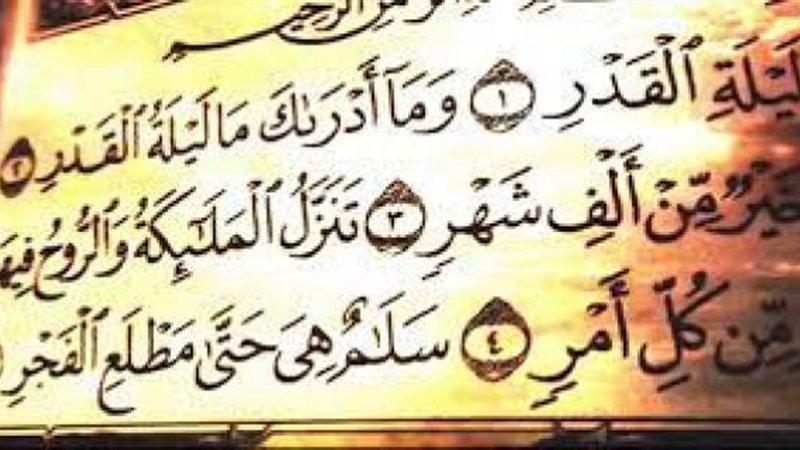 الرحيم
لَيْلَةِ ٱلْقَدْرِ ١ وَمَآ أَدْرَىٰكَ مَا لَيْلَةُ ٱلْقَدْرِ ٢
خَيْرٌ مِّنْ أَلْفِ شَهْرٍ ٣ تَنَزَّلُ ٱلْمَلَٰٓئِكَةُ وَٱلرُّوحُ فِيهَا
مِّن كُلِّ أَمْرٍ ٤ سَلَٰمٌ هِىَ حَتَّىٰ مَطْلَعِ ٱلْفَجْرِ